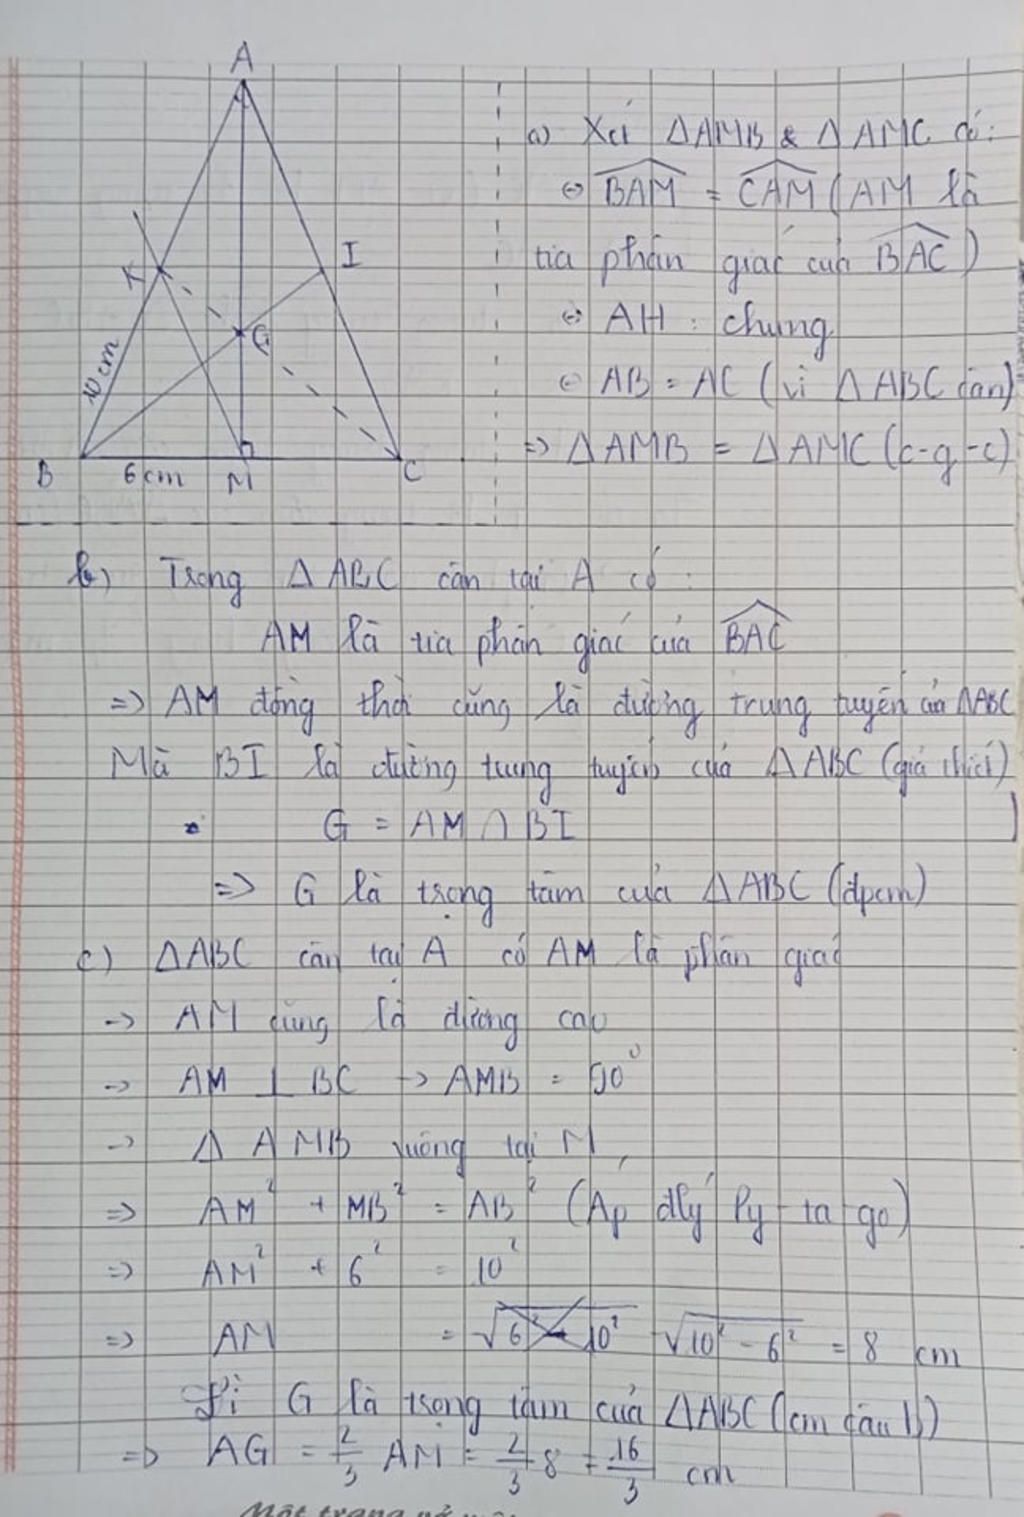 A
K
I
G
10 cm
B
6 cm
M
C
a) Xét ΔAMB & ΔAMC có:
BAM = CAM (AM là
tia phân giác của BAC)
AH : chung
AB = AC (vì ΔABC cân)
=> ΔAMB = ΔAMC (c-g-c)
b) Trong ΔABC cân tại A có :
AM là tia phân giác của BAC
=> AM đồng thời cũng là đường trung tuyến của ΔABC
Mà BI là đường trung tuyến của ΔABC (giả thiết)
G = AM ∩ BI
=> G là trọng tâm của ΔABC (đpcm)
c) ΔABC cân tại A có AM là phân giác
-> AM cũng là đường cao
-> AM ⊥ BC -> AMB = 90⁰
-> Δ AMB vuông tại M
=> AM² + MB² = AB² (Áp đlý Py-ta-go)
=> AM² + 6² = 10²
=> AM = √10² - 6² = 8 cm
Vì G là trọng tâm của ΔABC (cm câu b)
=> AG = 2/3 AM = 2/3 8 = 16/3 cm
Một trang vở